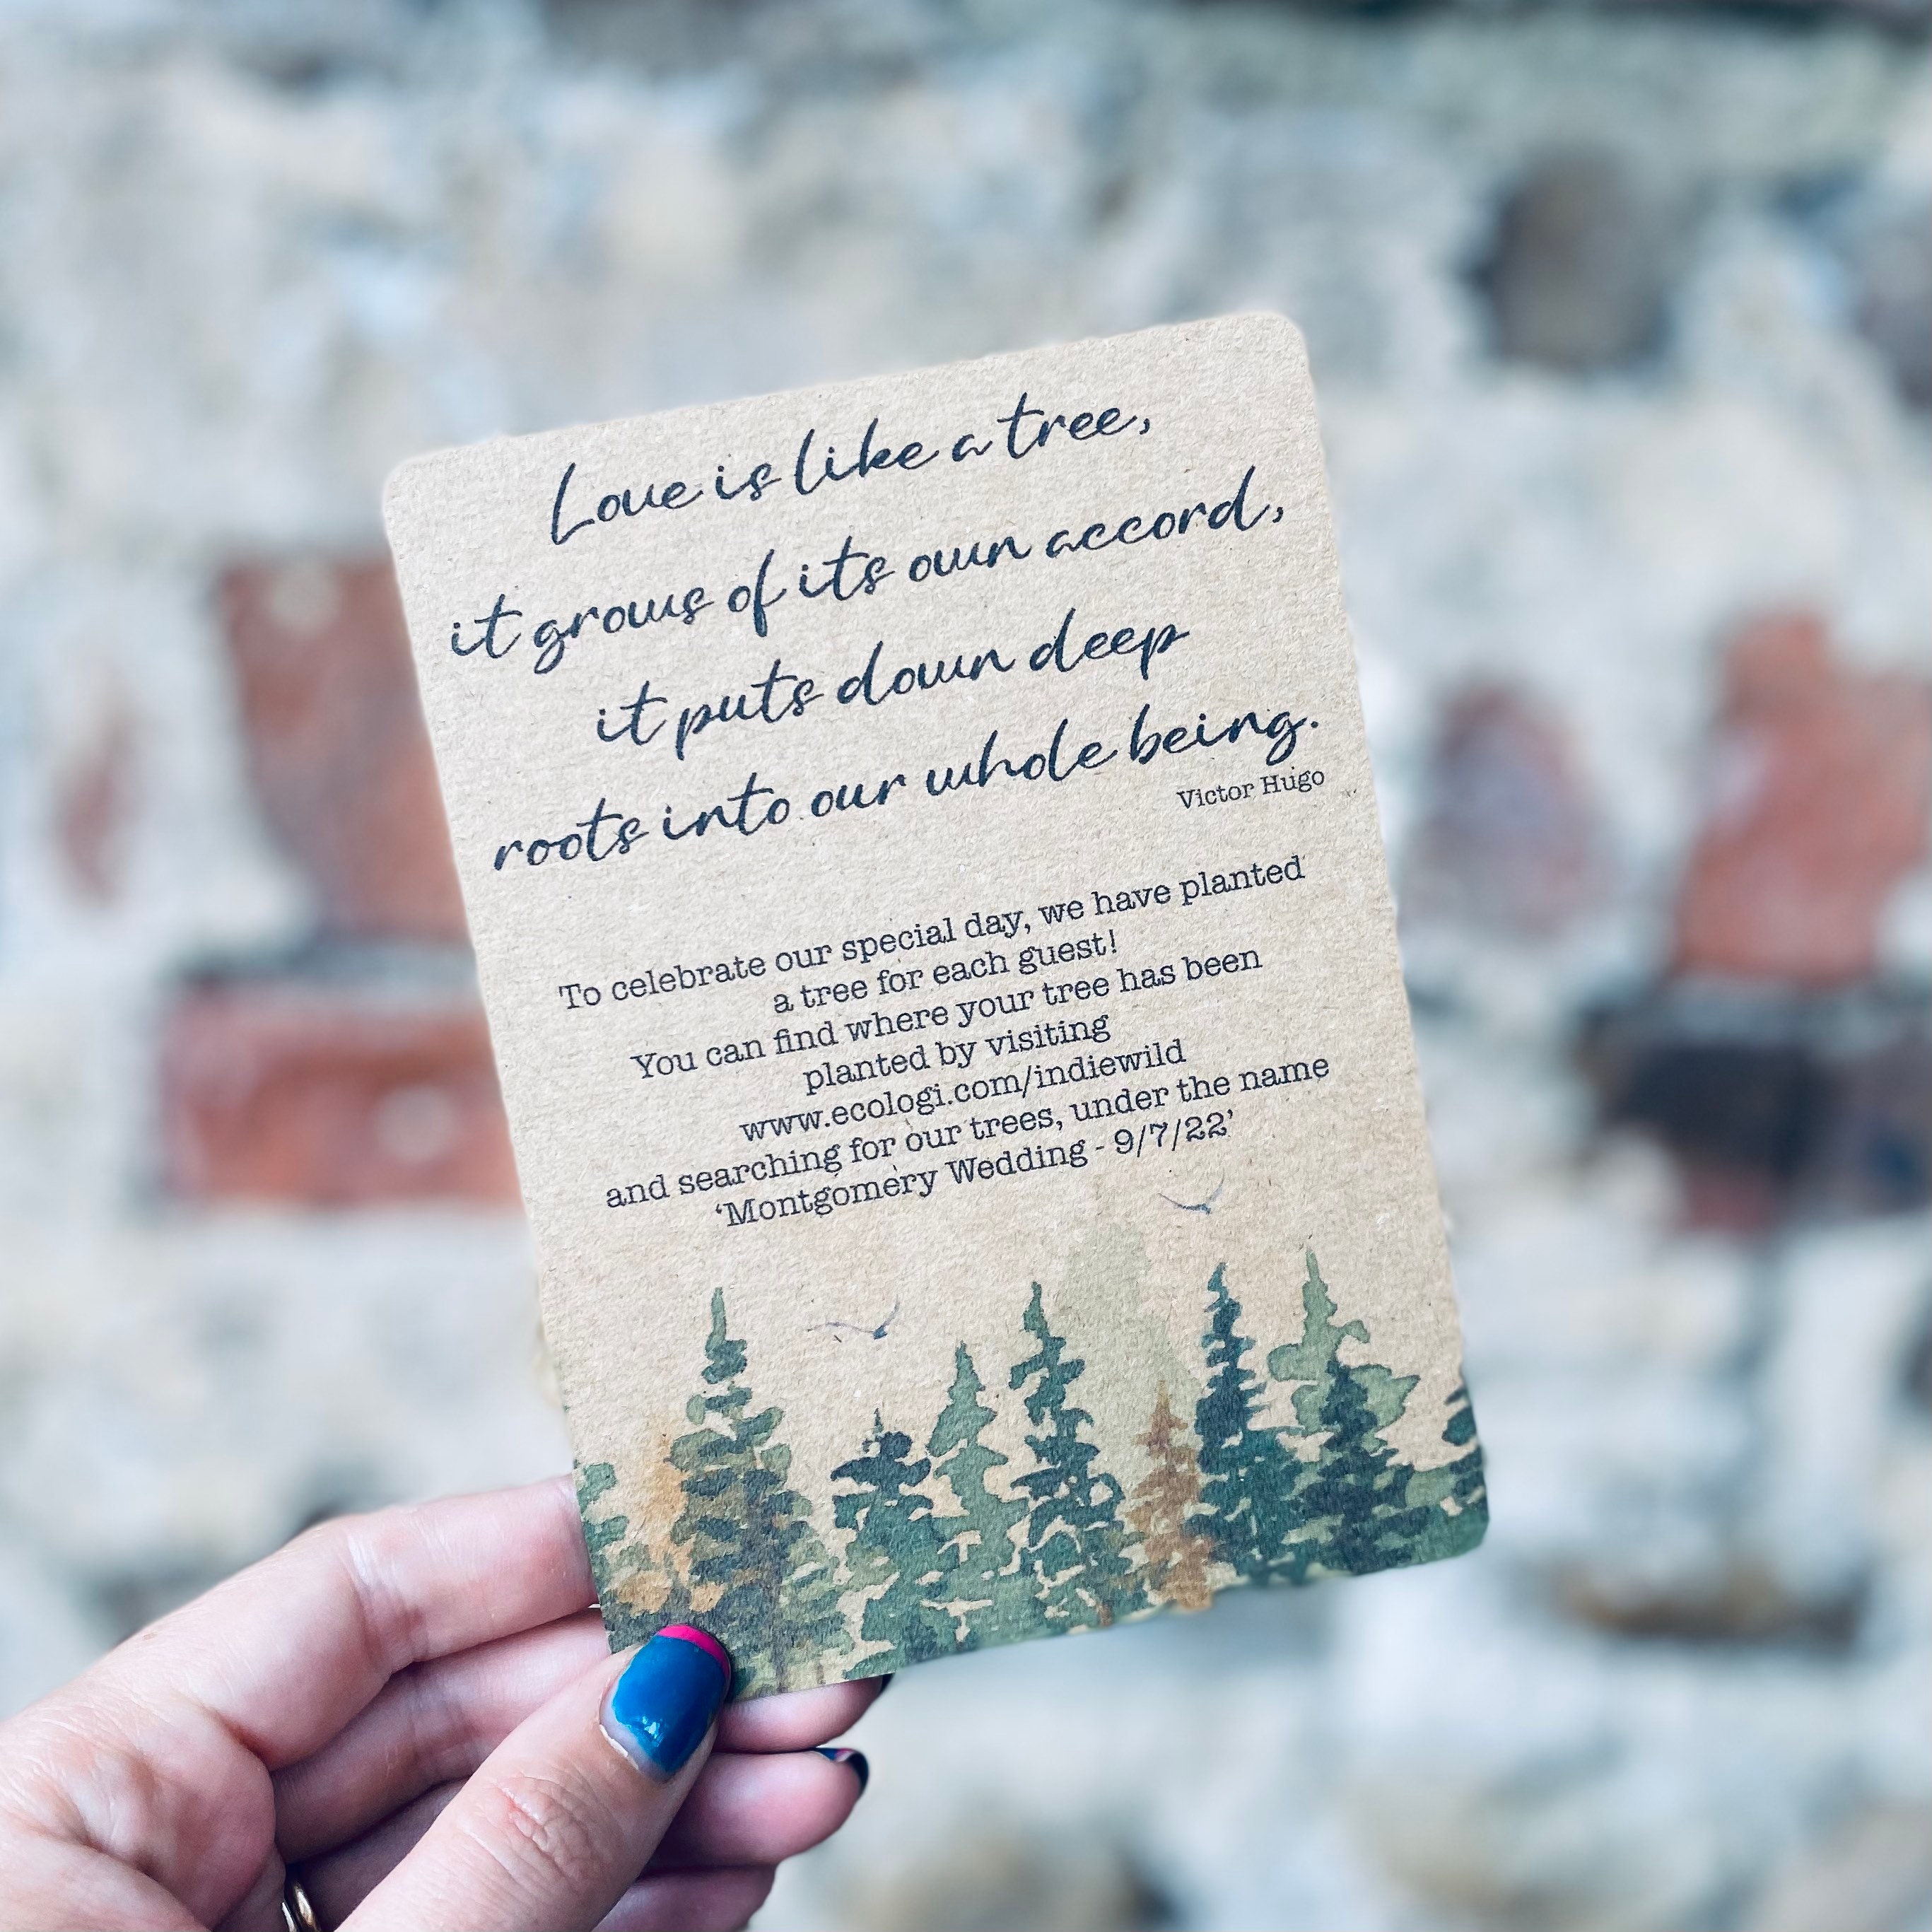 Love is like a tree,
it grows of its own accord,
it puts down deep
roots into our whole being.
Victor Hugo
To celebrate our special day, we have planted
a tree for each guest!
You can find where your tree has been
planted by visiting
www.ecologi.com/indiewild
and searching for our trees, under the name
‘Montgomery Wedding - 9/7/22’